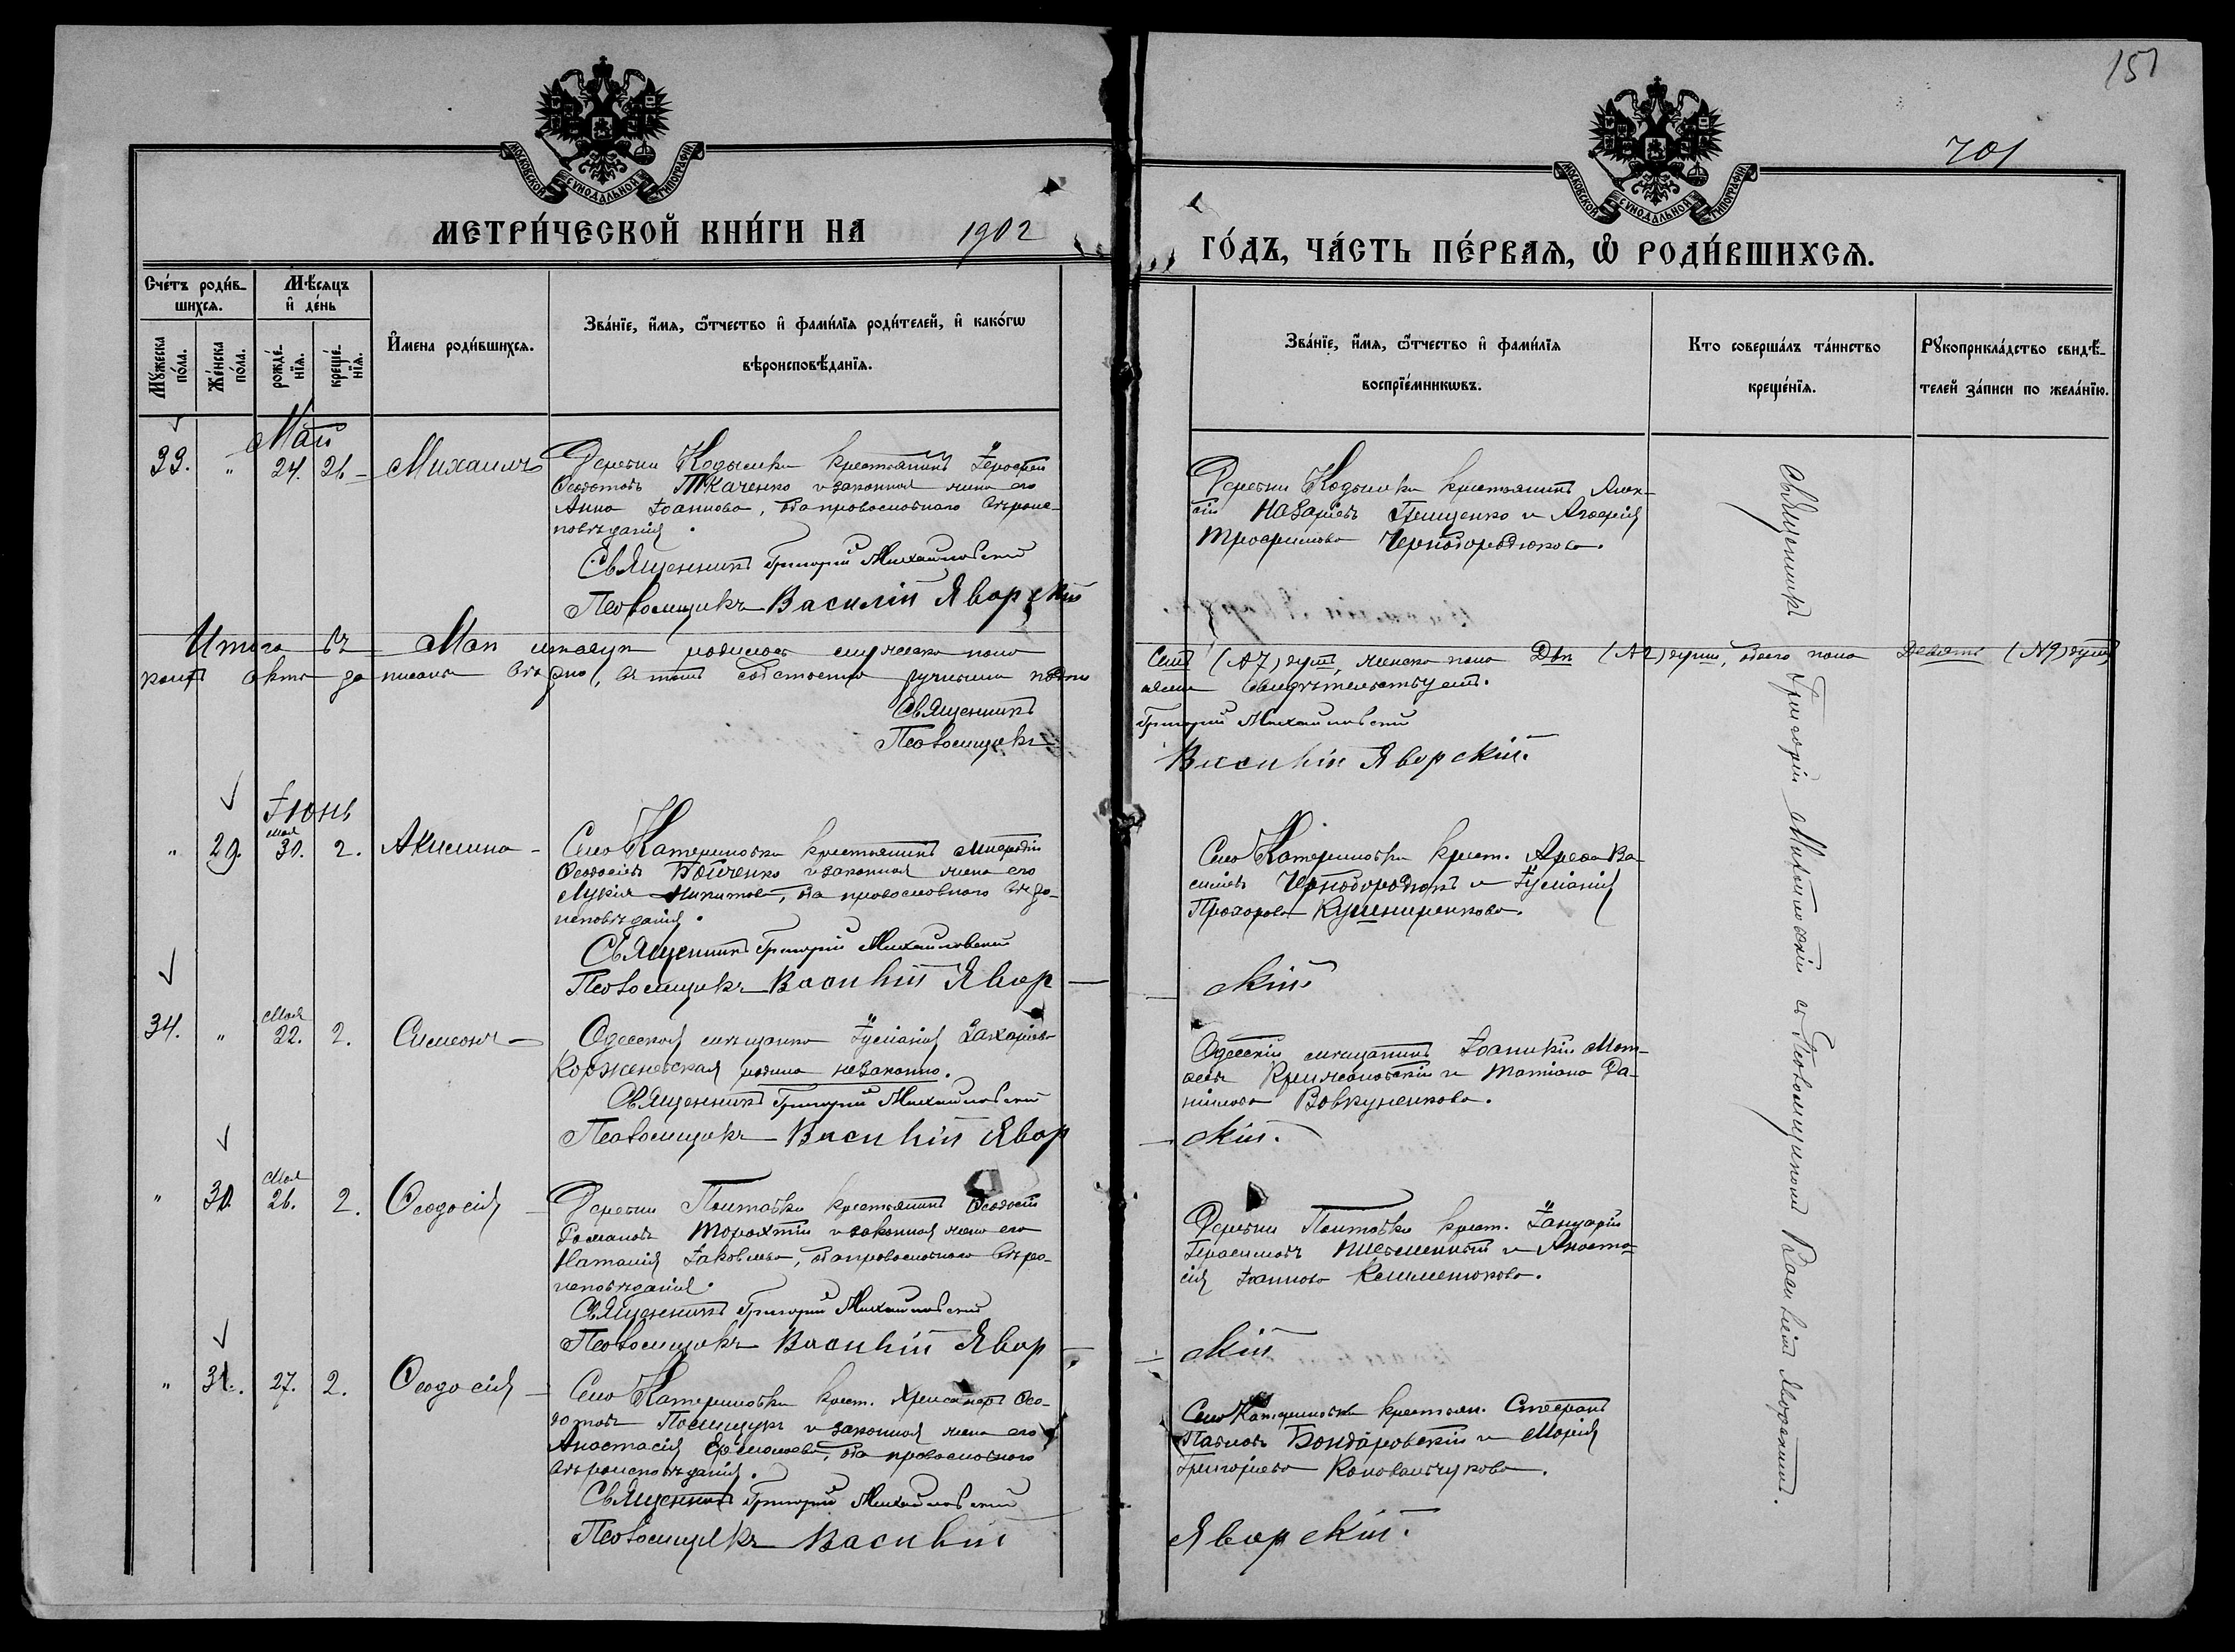 151
701
МОСКОВСКОЙ СѴНОДАЛЬНОЙ ТИПОГРАФІИ
МОСКОВСКОЙ СѴНОДАЛЬНОЙ ТИПОГРАФІИ
МЕТРИ́ЧЕСКОЙ КНИ́ГИ НА 1902
ГО́ДЪ, ЧА́СТЬ ПЕ́РВАѦ, Ѡ҆ РОДИ́ВШИХСѦ.
Сче́тъ роди́в-
шихсѧ.
Мꙋ́жеска по́ла.
Же́нска по́ла.
Мѣ́сѧцъ
и҆ де́нь
рожде́-нїѧ.
креще́-нїѧ.
И҆мена роди́вшихсѧ.
Зва́нїе, и҆́мѧ, ѻ҆́тчество и҆ фами́лїѧ роди́телей, и҆ како́гѡ
вѣроисповѣ́данїѧ.
Зва́нїе, и҆́мѧ, ѻ҆́тчество и҆ фами́лїѧ
воспрїе́мникѡвъ.
Кто соверша́лъ та́инство
креще́нїѧ.
Рꙋкоприкла́дство свидѣ́-
телей за́писи по жела́нїю.
Май
33. " 24. 26 Михаилъ
Деревни Кодымки крестьянинъ Іероѳей
Ѳеодотовъ Ткаченко и законная жена его
Анна Іоаннова, оба православнаго вѣроис-
повѣданія.
Священникъ Григорій Михайловскій
Псаломщикъ Василій Яворскій
Деревни Кодымки крестьянинъ Алек-
сій Назаріевъ Грищенко и Агафія
Трофимова Чернобородюкова.
Итого въ Маѣ мѣсяцѣ родилось мужеска пола
Семь (№7) душъ, женска пола Двѣ (№2) души, обоего пола Девять (№9) душъ
писаны вѣрно, въ томъ собственно ручнымъ подпи
саніемъ свидѣтельствуемъ.
Священникъ Григорій Михайловскій
Псаломщикъ Василій Яворскій.
Іюнь
" 29. мая 30. 2. Акилина
Село Катериновки крестьянинъ Меѳодій
Ѳеодосіевъ Бойченко и законная жена его
Лукія Никитова, оба православнаго вѣро-
исповѣданія.
Священникъ Григорій Михайловскій
Псаломщикъ Василій Яворскій
Село Катериновки крест. Ва-
силіевъ Чернобородюкъ и Іуліанія
Прохорова Кушниренкова.
34. " Мая 22. 2. Симеонъ
Одесская мѣщанка Іуліанія Захаріева
Корженевская родила незаконно.
Священникъ Григорій Михайловскій
Псаломщикъ Василій Яворскій.
Одесскій мѣщанинъ Іоаникій Мат-
ѳеевъ Крижановскій и Татіана Да-
нилова Вовкуненкова.
" 30. Мая 26. 2. Ѳеодосія
Деревни Полтавки крестьянинъ Ѳеодосій
Романовъ Торохтій и законная жена его
Наталія Іаковлева, оба православнаго вѣро-
исповѣданія.
Священникъ Григорій Михайловскій
Псаломщикъ Василій Яворскій
Деревни Полтавки крест. Іануарій
Герасимовъ Писменный и Анаста-
сія Іоаннова Климентюкова.
" 31. 27. 2. Ѳеодосія
Село Катериновки крест. Хрисанфъ Ѳео-
дотовъ Полищукъ и законная жена его
Анастасія Ермолаева, оба православнаго
вѣроисповѣданія.
Священникъ Григорій Михайловскій
Псаломщикъ Василій Яворскій.
Село Катериновки крестьян. Стефанъ
Павловъ Бондаровскій и Марія
Григоріева Коновальчукова.
Священникъ Григорій Михайловскій съ Псаломщикомъ Василіемъ Яворскимъ.